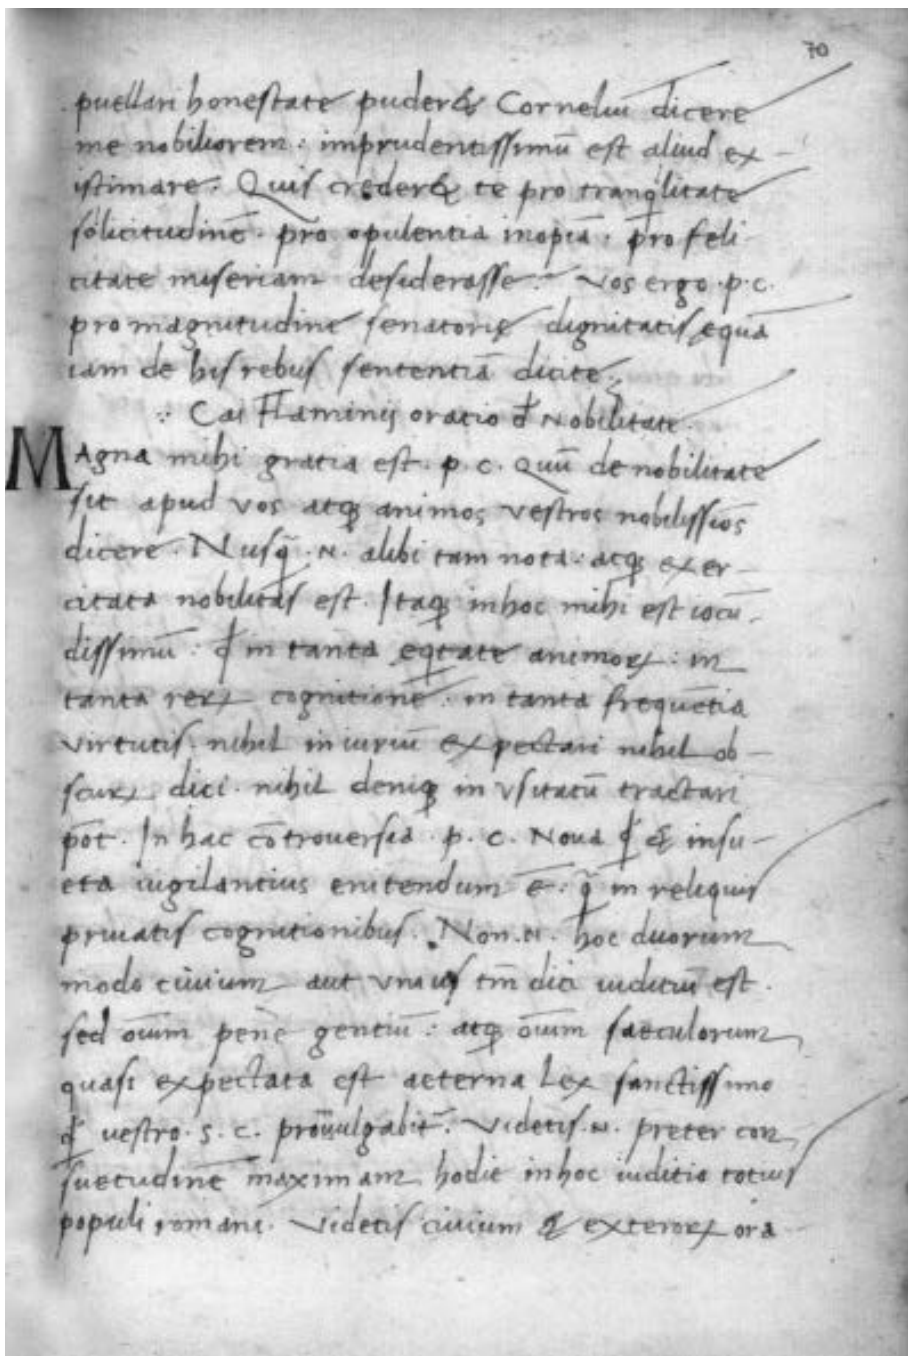 70
puellari honestate puder& Corneliū dicere
me nobiliorem : imprudentissimū est aliud ex
istimare. Quis creder& te pro tranqͥlitate
sollicitudinē . pro opulentia inopiā . pro feli
citate miseriam desiderasse. Vos ergo .p.c.
pro magnitudine senatorię dignitatis ęquā
iam de his rebus sententiā dicite.
Cai Flaminij oratio đ Nobilitate.
MAgna mihi gratia est . p. c. Quū de nobilitate
sit apud vos atqꝫ animos vestros nobilissiōs
dicere. Nusq̄ .N. alibi tam nota : atqꝫ exer–
citata nobilitas est. Itaqꝫ in hoc mihi est iocū–
dissimū : ꝙ in tanta eqͥtate animoꝝ : in
tanta reꝝ cognitione : in tanta frequētia
virtutis . nihil iniuriū expectari nihil ob–
scuꝝ dici . nihil deniqꝫ in vsitatū tractari
põt. In hac cōtroversia . p. c. Nova ꝙ & insu–
eta vigilantius enitendum ē . q̄ in reliquis
privatis cognitionibus. Non .N. hoc duorum
modo civium aut vnius tm̄ dici iuditiū est.
sed oīum pene gentiū : atqꝫ oīum saeculorum
quasi expectata est aeterna Lex sanctissimo
ꝙ vestro .s. c. promulgabit̄. Videtis .N. preter con
suetudinē maximam hodie in hoc iuditio totius
populi romani. Videtis civium & exteroꝝ ora